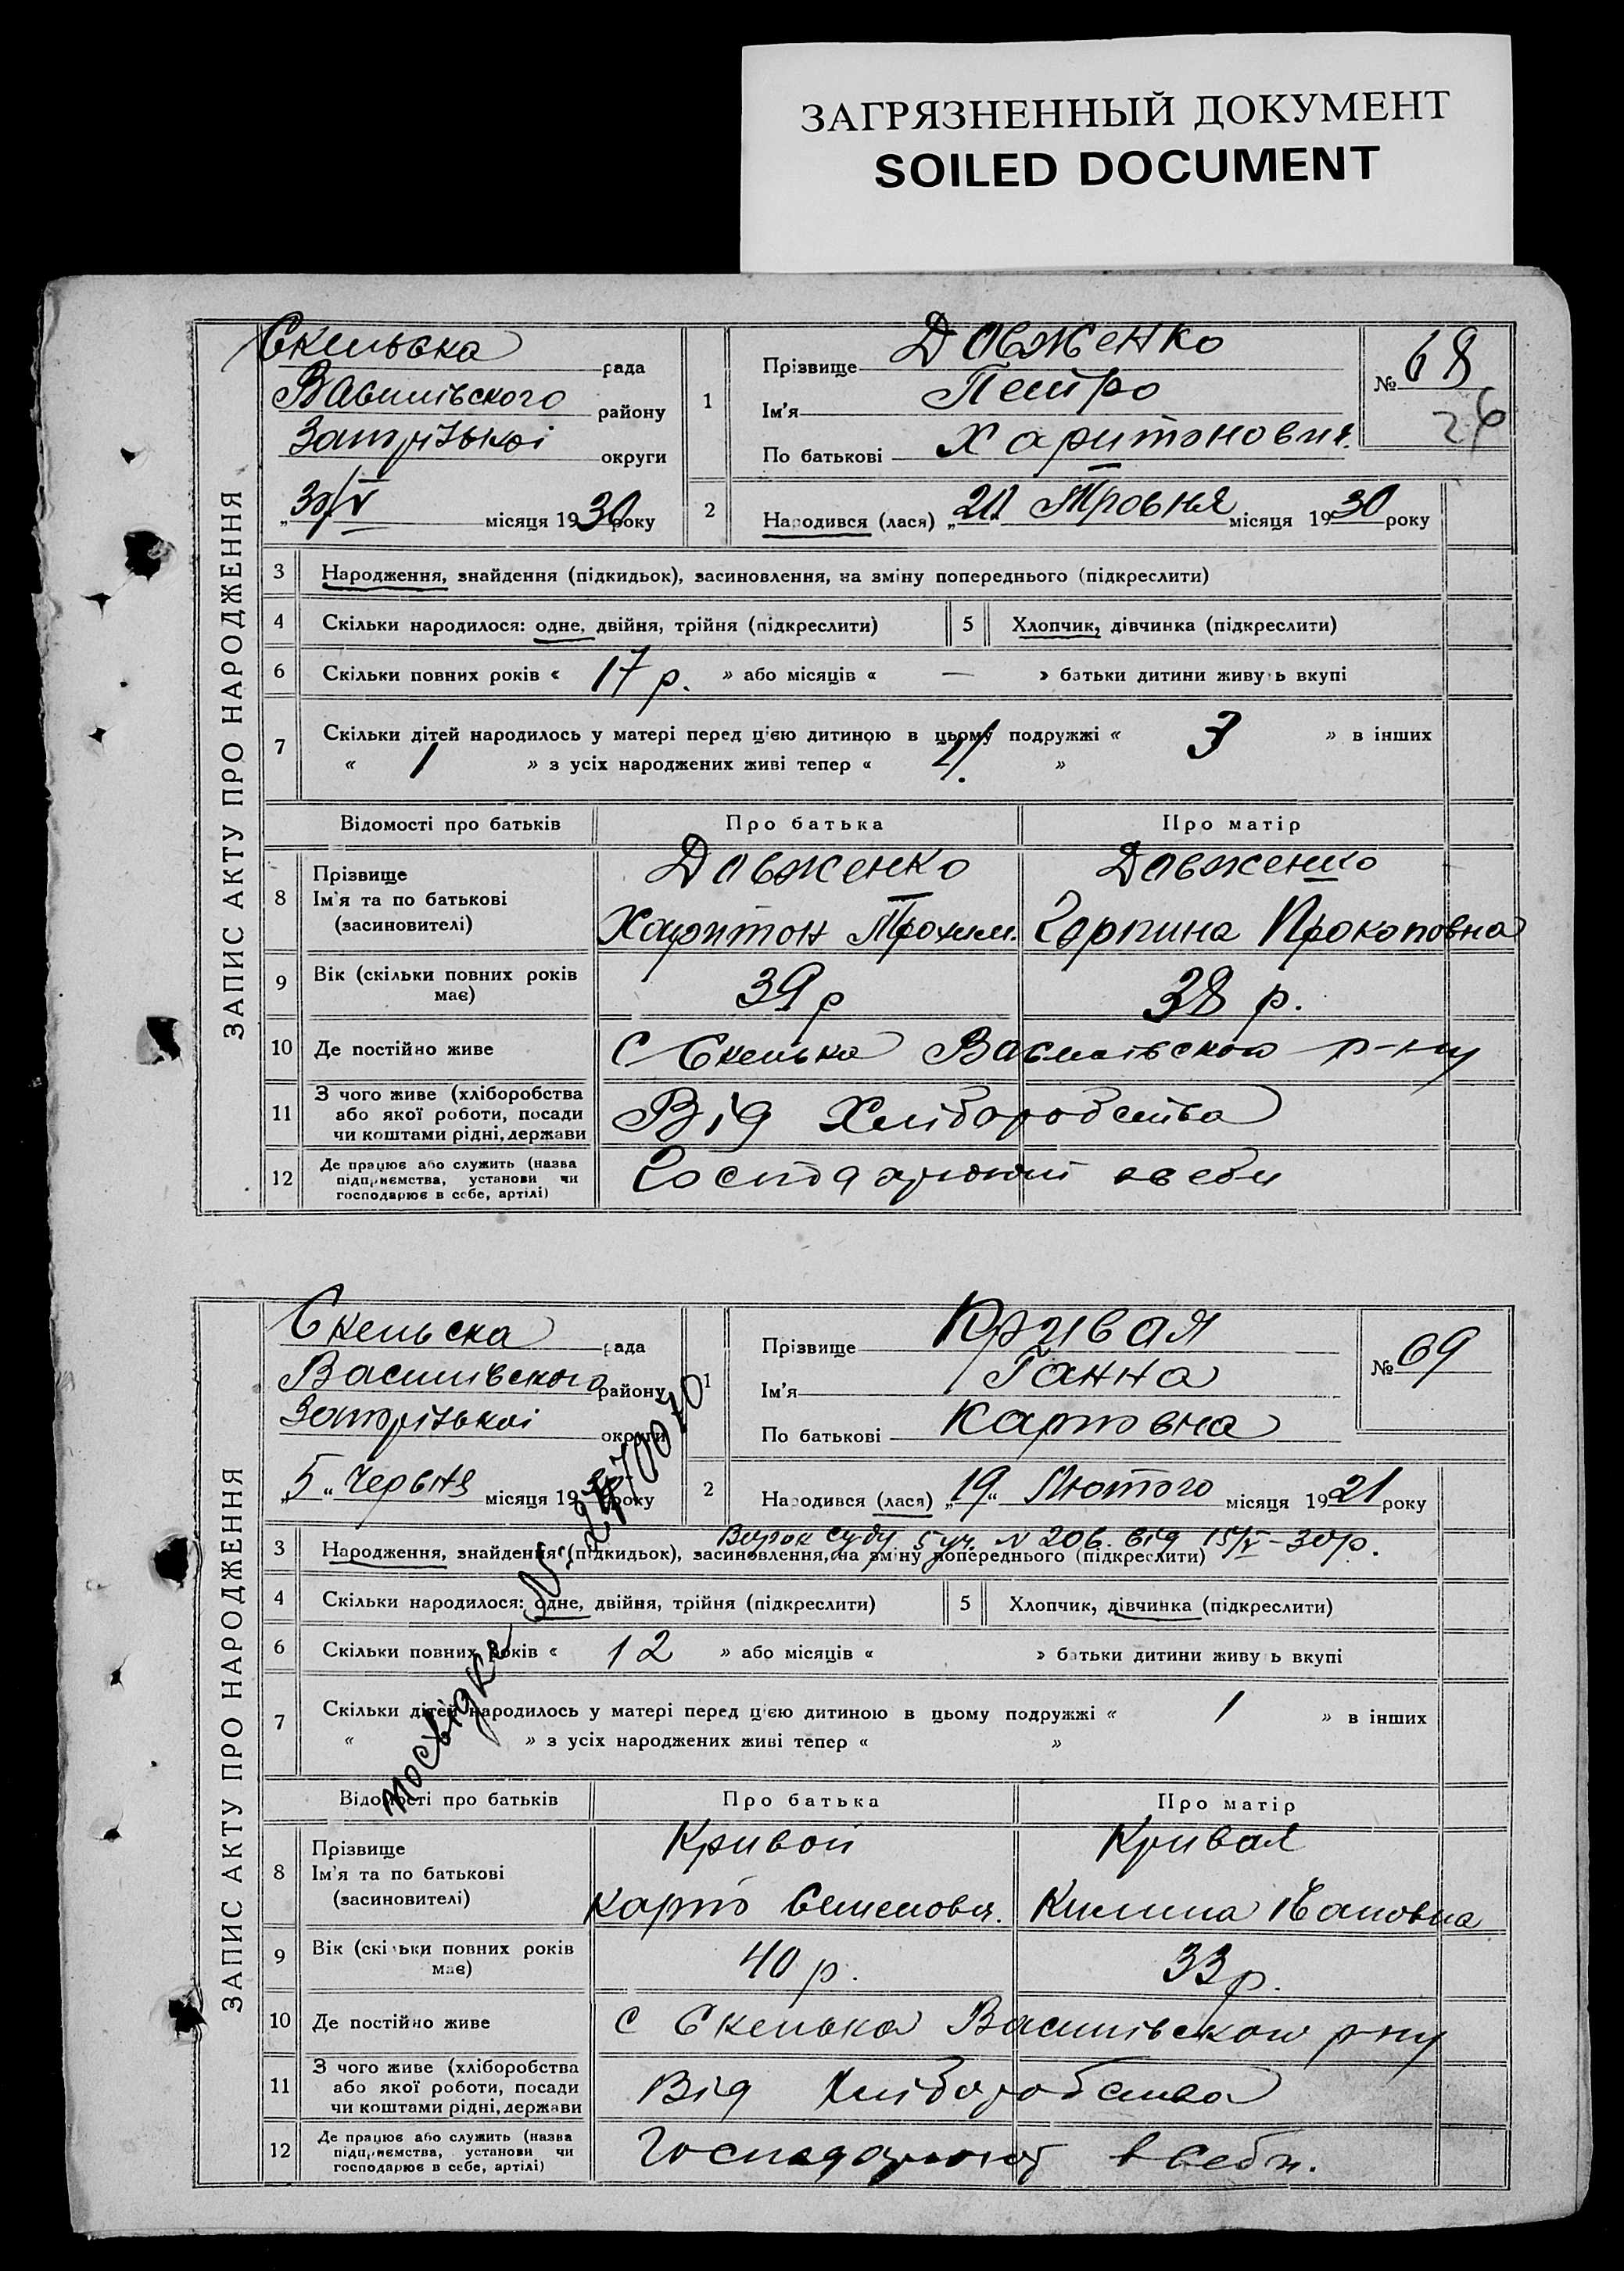 ЗАГРЯЗНЕННЫЙ ДОКУМЕНТ
SOILED DOCUMENT
ЗАПИС АКТУ ПРО НАРОДЖЕННЯ
Скельська рада
Василівського району
Запоріської округи
„30/V місяця 1930 року
1
Прізвище Довженко
Ім'я Петро
По батькові Харитонович.
№ 68
26
2
Народився (лася) „20 Тровня місяця 1930 року
3 Народження, знайдення (підкидьок), засиновлення, на зміну попереднього (підкреслити)
4 Скільки народилося: одне, двійня, трійня (підкреслити)
5 Хлопчик, дівчинка (підкреслити)
6 Скільки повних років « 17 р. » або місяців « — » батьки дитини живуть вкупі
7 Скільки дітей народилось у матері перед цією дитиною в цьому подружжі « 3 » в інших
« 1 » з усіх народжених живі тепер « 4. »
Відомості про батьків Про батька Про матір
8 Прізвище
Ім'я та по батькові
(засиновителі)
Довженко
Харитон Трохим.
Довженко
Горпина Прокоповна
9 Вік (скільки повних років має) 39 р 38 р.
10 Де постійно живе С Скелька Василівского р-ну
11 З чого живе (хліборобства або якої роботи, посади чи коштами рідні, держави Від Хліборобства
12 Де працює або служить (назва підприємства, установи чи господарює в себе, артілі) Господарюют в себи
ЗАПИС АКТУ ПРО НАРОДЖЕННЯ
Скельска рада
Василівского району
Запорізькоі округи
„5" Червня місяця 1930 року
1
Прізвище Кривая
Ім'я Ганна
По батькові Карповна
№ 69
2
Народився (лася) „19" Лютого місяця 1921 року
Вирок суду 5 уч. N 206. від 15/V-30р.
3 Народження, знайдення (підкидьок), засиновлення, на зміну попереднього (підкреслити)
4 Скільки народилося: одне, двійня, трійня (підкреслити)
5 Хлопчик, дівчинка (підкреслити)
6 Скільки повних років « 12 » або місяців « » батьки дитини живуть вкупі
7 Скільки дітей народилось у матері перед цією дитиною в цьому подружжі « 1 » в інших
« » з усіх народжених живі тепер « »
Відомості про батьків Про батька Про матір
8 Прізвище
Ім'я та по батькові
(засиновителі)
Кривой
Карпо Семенович.
Кривая
Килина Ивановна
9 Вік (скільки повних років має) 40 р. 33 р.
10 Де постійно живе С Скелька Василівского р-ну
11 З чого живе (хліборобства або якої роботи, посади чи коштами рідні, держави Від Хліборобства
12 Де працює або служить (назва підприємства, установи чи господарює в себе, артілі) Господарюют в себи.